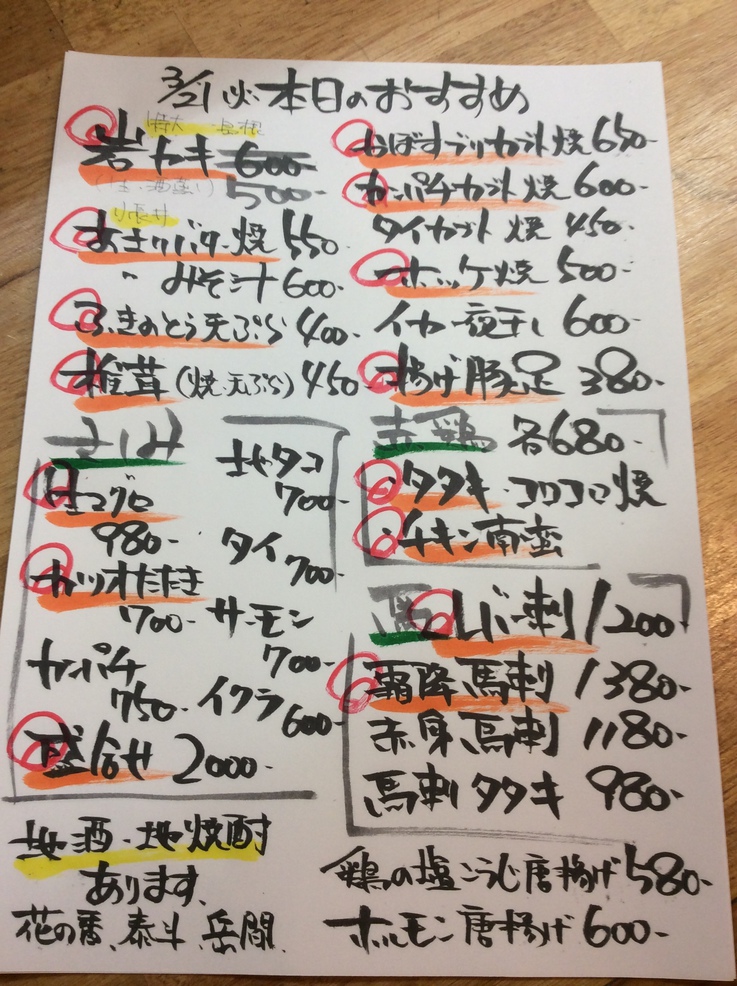 3/21火 本日のおすすめ
特大 島根
岩カキ 600-
500-
あさりバター焼 550-
〃 みそ汁 600-
ふきのとう天ぷら 400-
椎茸(焼・天ぷら) 450-
さしみ
生マグロ
980-
カツオたたき
700-
カンパチ
750-
盛合せ 2000-
地タコ
700-
タイ
700-
サーモン
700-
イクラ
600-
地酒・地焼酎
あります、
花の香、泰斗 岳間、
おぼすブリカブト焼 650-
カンパチカブト焼 600-
タイカブト焼 450-
ホッケ焼 500-
イカ一夜干し 600-
揚げ豚足 380-
赤鶏 各680-
・タタキ・コロコロ焼
・チキン南蛮
馬 レバー刺 1200
霜降馬刺 1380-
赤身馬刺 1180-
馬刺タタキ 980-
鶏の塩こうじ唐揚げ 580-
ホルモン唐揚げ 600-